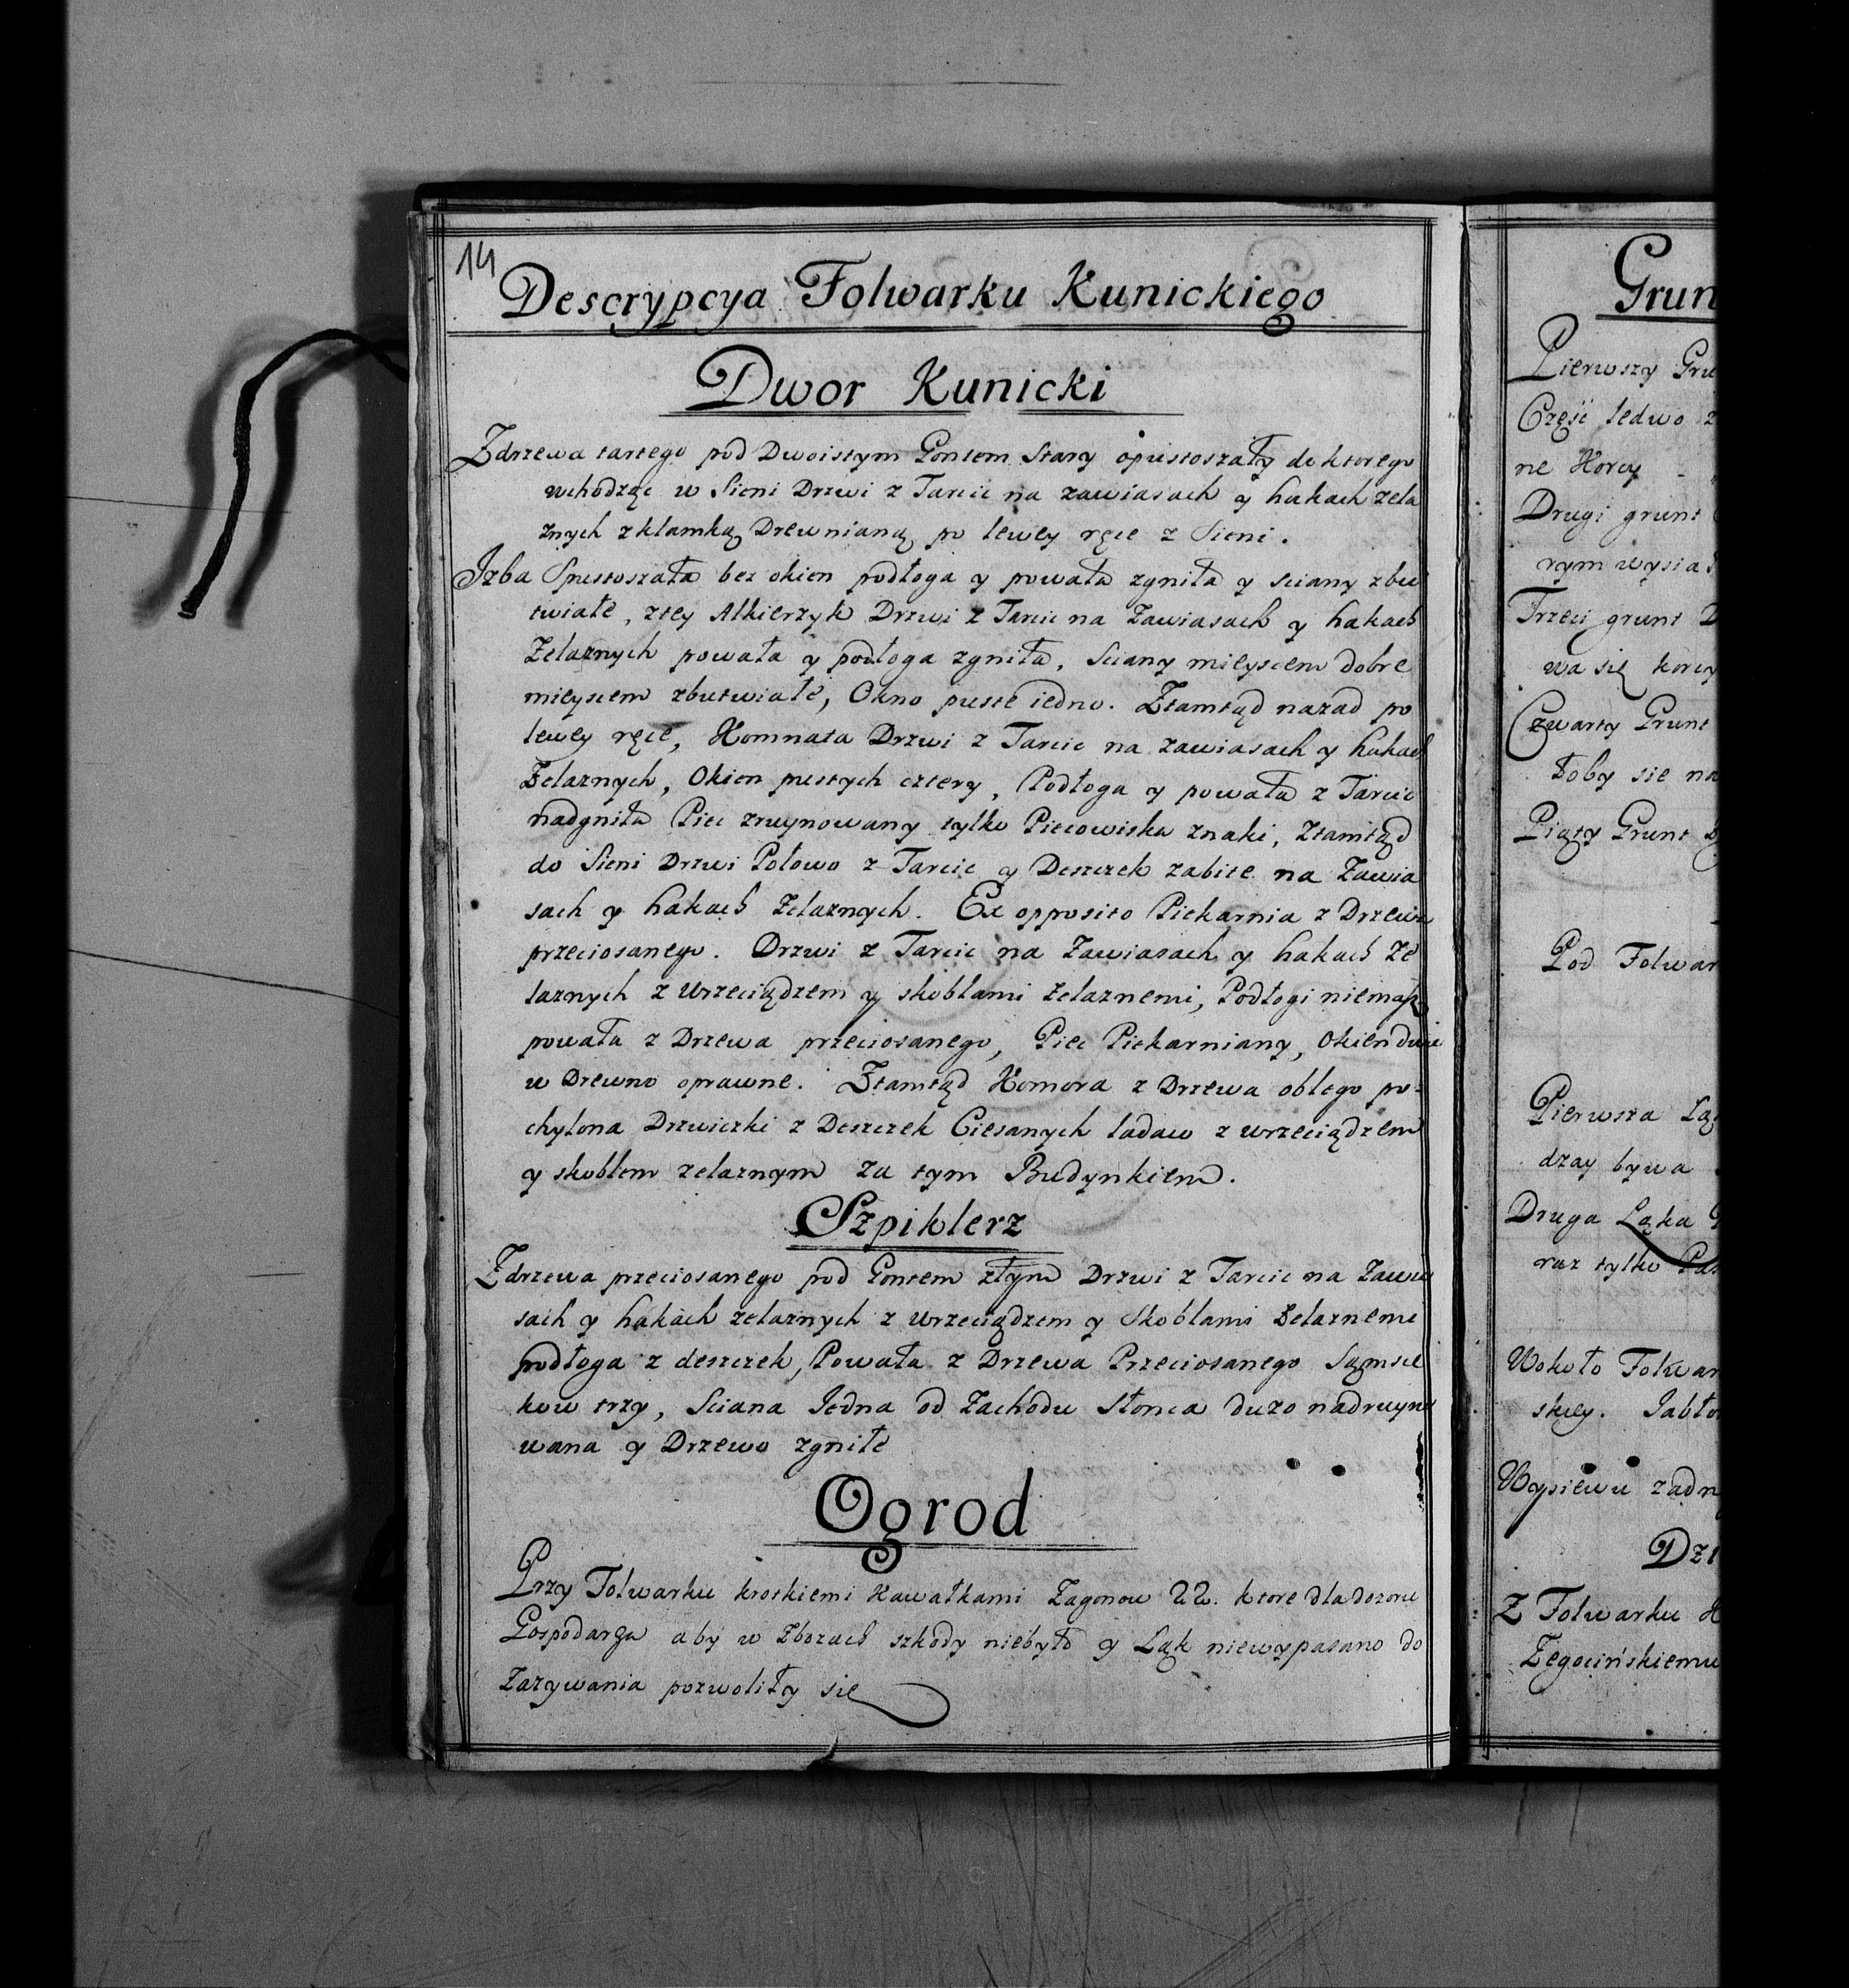 14
Descrypcya Folwarku Kunickiego
Dwor Kunicki
Zdrzewa tartego pod Dwoistym Gontem Stary opustoszały do ktorego
wchodząc w Sieni Drzwi z Tarcic na zawiasach y hakach zela
znych z klamką Drewnianą po lewey ręce z Sieni.
Izba Spustoszała bez okien podłoga y powała zgniła y sciany zbu
twiałe, z tey Alkierzyk Drzwi z Tarcic na Zawiasach y hakach
Zelaznych powała y podłoga zgniła, Sciany mieyscem dobre
mieyscem zbutwiałe, Okno puste iedno. Ztamtąd nazad po
lewey ręce, Komnata Drzwi z Tarcic na zawiasach y hakach
Zelaznych, Okien pustych cztery, Podłoga y powała z Tarcic
nadgniła Piec zruynowany tylko Piecowiska znaki, Ztamtąd
do Sieni Drzwi Połowo z Tarcic y Deszczek zabite na Zawia
sach y hakach Zelaznych. Ex opposito Piekarnia z Drzewa
przeciosanego. Drzwi z Tarcic na Zawiasach y hakach Ze
laznych z Wrzeciądzem y skoblami zelaznemi, Podłogi niemasz
powała z Drzewa przeciosanego, Piec Piekarniany, Okien dwie
w Drewno oprawne. Ztamtąd Komora z Drzewa obłego po-
chylona Drzwiczki z Deszczek Ciesanych ladaco z wrzeciądzem
y skoblem zelaznym za tym Budynkiem.
Szpiklerz
Zdrzewa przeciosanego pod Gontem złym Drzwi z Tarcic na Zawia
sach y hakach zelaznych z wrzeciądzem y Skoblami Zelaznemi
podłoga z deszczek, Powała z Drzewa Przeciosanego Sąmsie
kow trzy, Sciana Jedna od Zachodu Słonca duzo nadruyno
wana y Drzewo zgniłe
Ogrod
Przy Folwarku krotkiemi Kawałkami Zagonow 22. ktore dla dozoru
Gospodarza aby w Zbozach szkody niebyło y Łąk niewypasano do
Zazywania pozwoliły się
Grun
Pierwszy Gru
Częsc ledwo z
ne Korcy
Drugi grunt
rym wysia
Trzeci grunt D
wa się korcy
Czwarty Grunt
łoby sie na
Piąty Grunt
Pod Folwar
Pierwsza Łą
dzay bywa
Druga Łąka
raz tylko Pas
Wokoło Folwar
skiey. Jabło
Wysiewu zadn
Dzi
Z Folwarku K
Zegocińskiemu